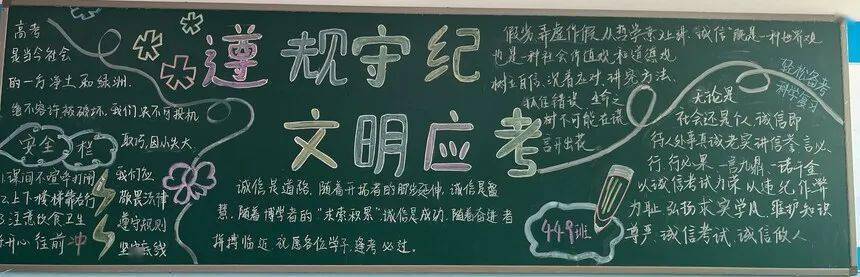 遵规守纪
文明应考
高考
是当今社会
的一方净土和绿洲,
绝不容许被破坏,我们决不可投机
取巧,因小失大.
安全栏
1.课间不喧哗打闹
2.上下楼梯靠右行
3.注意饮食卫生
开心往前冲
我们应
敬畏法律
遵守规则
坚守底线
诚信是道路,随着开拓者的脚步延伸,诚信是智
慧,随着博学者的“求索积累”,诚信是成功,随着奋进者
拼搏临近.祝愿各位学子,逢考必过.
假若弄虚作假
诚信”既是一种世界观
也是一种社会价值观和道德观
树立自信,沉着应对,讲究方法.
抓住错误,生命之
树不可能在谎
言开出花.
轻松备考
科学复习
无论是
社会还是个人,诚信即
行人处事真诚老实讲信誉,言必
行,行必果,一言九鼎,一诺千金
以诚信考试为荣,以违纪作弊
为耻,弘扬求实学风,维护知识
尊严,诚信考试,诚信做人.
449班